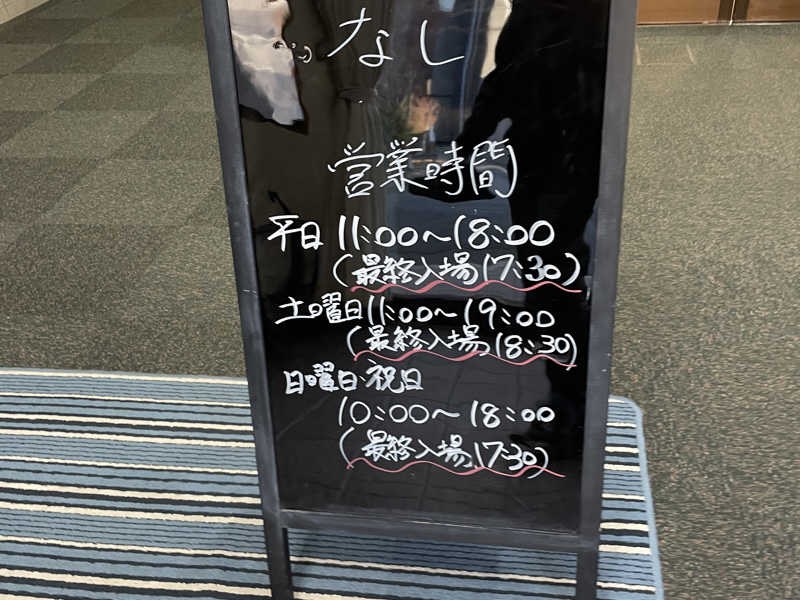 なし
営業時間
平日 11:00～18:00
(最終入場17:30)
土曜日11:00～19:00
(最終入場18:30)
日曜日・祝日
10:00～18:00
(最終入場17:30)